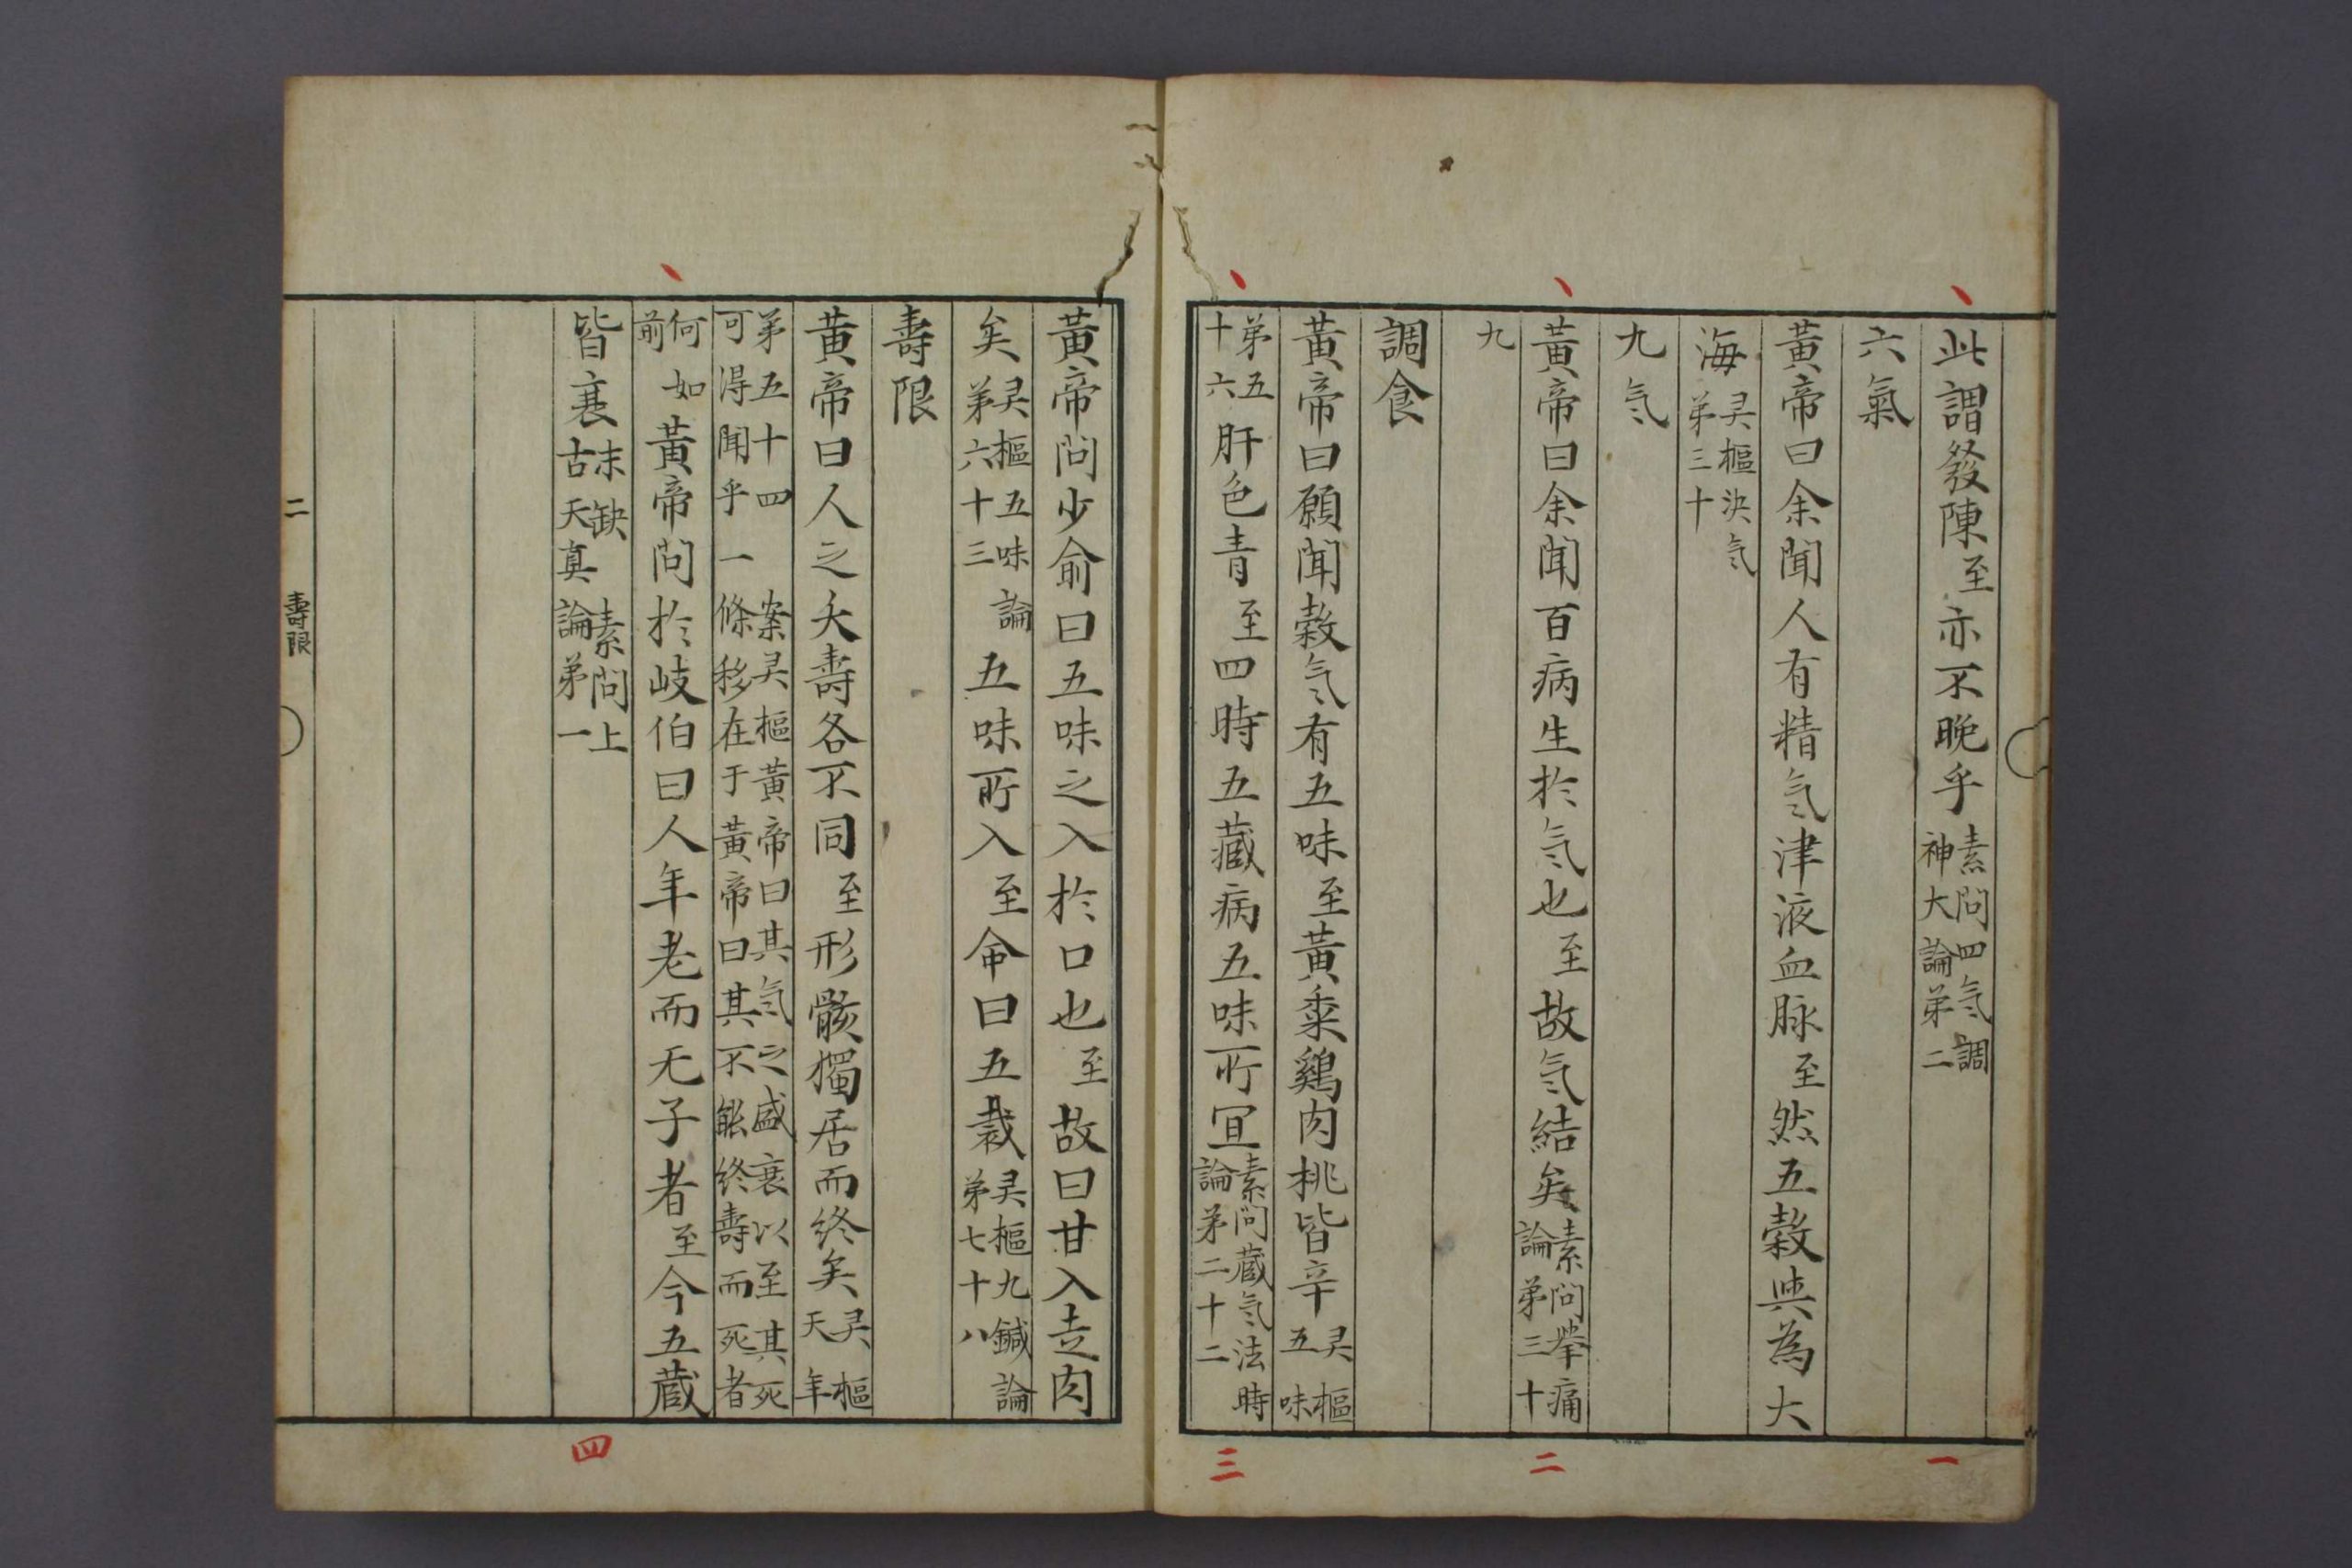 此謂發陳至亦不晚乎素問四气調神大論弟二
六氣
黃帝曰余聞人有精气津液血脉至然五穀與為大
海灵樞決气弟三十
九气
黃帝曰余聞百病生於气也至故气結矣素問舉痛論弟三十
九
調食
黃帝曰願聞穀气有五味至黃黍鷄肉桃皆辛灵樞五味
弟五十六肝色青至四時五藏病五味所宜素問藏气法時論弟二十二
黃帝問少俞曰五味之入於口也至故曰甘入走肉
矣灵樞五味論弟六十三五味所入至命曰五裁灵樞九鍼論弟七十八
壽限
黃帝曰人之夭壽各不同至形骸獨居而終矣灵樞天年
弟五十四案灵樞黃帝曰其气之盛衰以至其死可得聞乎一條移在于黃帝曰其不能終壽而死者
何如前黃帝問於岐伯曰人年老而无子者至今五藏
皆衰末缺素問上古天真論弟一
二 壽限
一
二
三
四